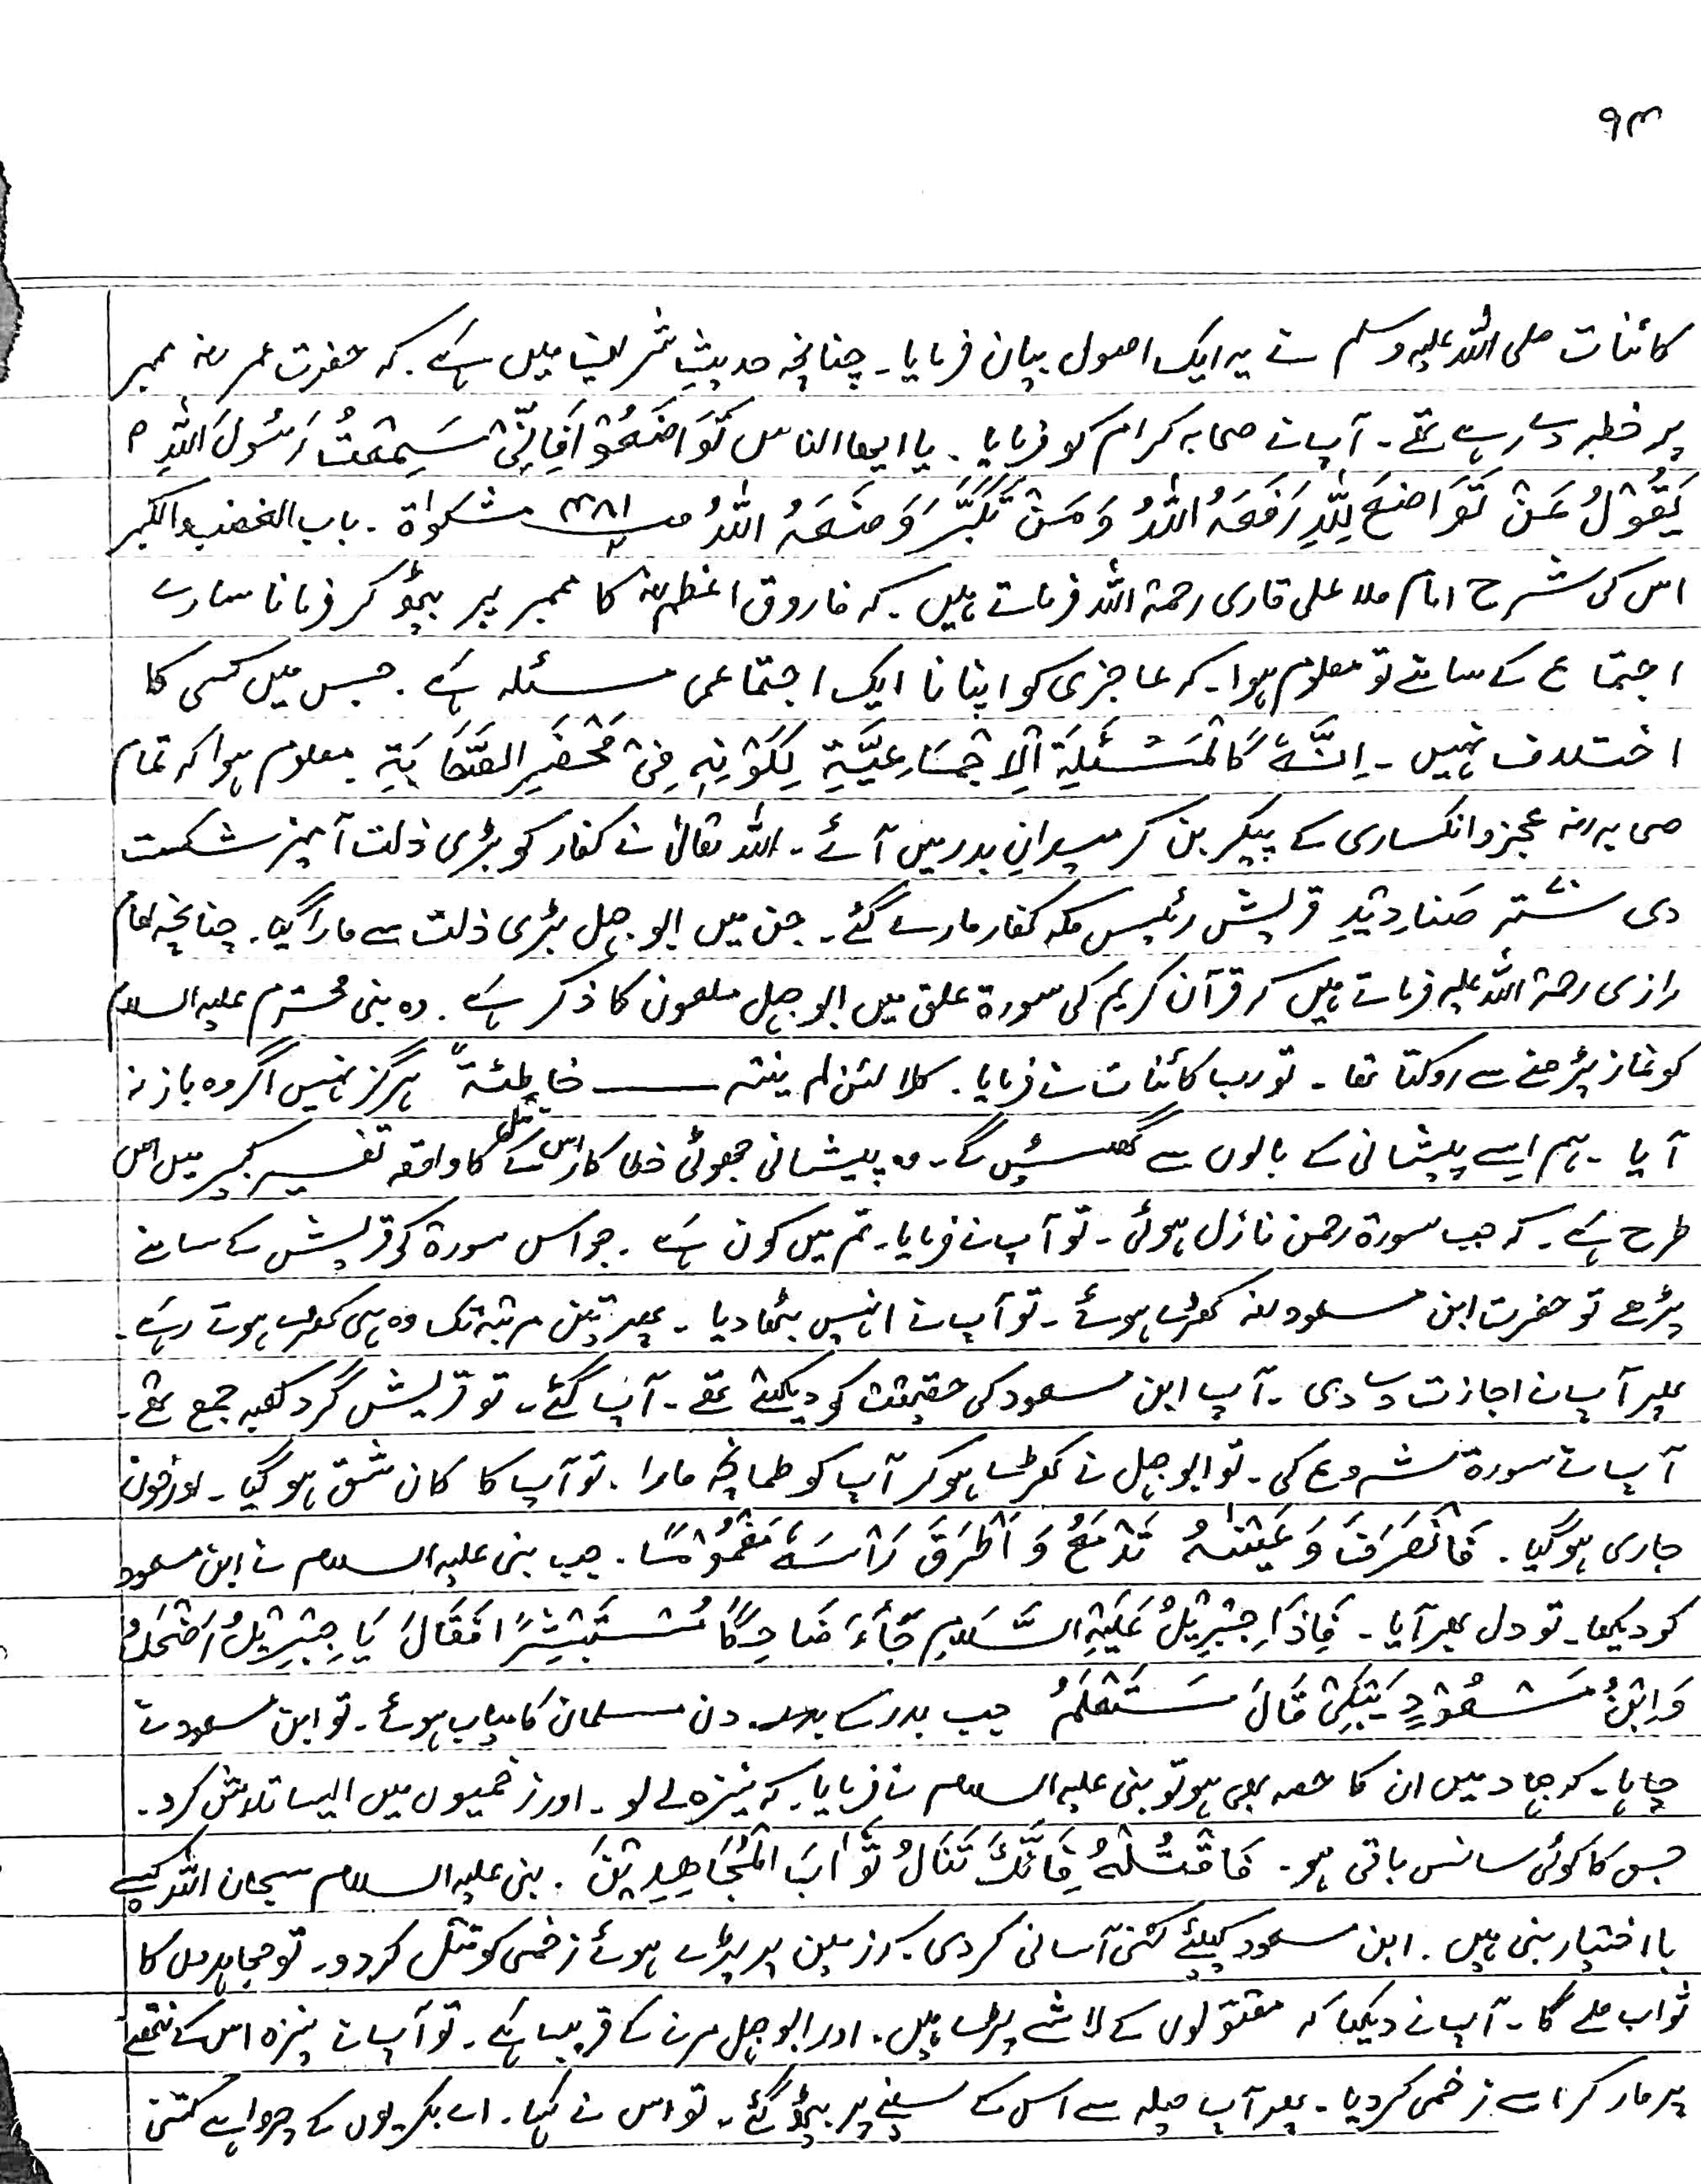 ۹۳
کائنات صلی اللہ علیہ وسلم نے یہ ایک اصول بیان فرمایا۔ چنانچہ حدیثِ شریف میں ہے۔ کہ حضرت عمر رضہ ممبر
پر خطبہ دے رہے تھے۔ آپ نے صحابہ کرام کو فرمایا۔ یا ایھا الناس تَوَاضَعُوْا فَاِنِّیْ سَمِعْتُ رَسُوْلَ اللّٰہِ ؐ
یَقُوْلُ مَنْ تَوَاضَعَ لِلّٰہِ رَفَعَہُ اللّٰہُ وَمَنْ تَکَبَّرَ وَضَعَہُ اللّٰہُ مشکوٰۃ۔ باب الغضب والکبر
اس کی شرح امام ملا علی قاری رحمۃ اللہ فرماتے ہیں۔ کہ فاروق اعظم رضہ کا ممبر پر بیٹھ کر فرمانا سارے
اجتماع کے سامنے تو معلوم ہوا۔ کہ عاجزی کو اپنانا ایک اجتماعی مسئلہ ہے۔ جس میں کسی کا
اختلاف نہیں۔ اِنَّہٗ کَالْمَسْئَلَۃِ الْاِجْمَاعِیَّۃِ لِکَوْنِہٖ فِیْ مَحْضَرِ الصَّحَابَۃِ۔ معلوم ہوا کہ تمام
صحابہ رضہ عجز و انکساری کے پیکر بن کر میدانِ بدر میں آئے۔ اللہ تعالیٰ نے کفار کو بڑی ذلت آمیز شکست
دی ستّر صَنَادِیْدِ قریش رئیس مکہ کفار مارے گئے۔ جن میں ابو جہل بڑی ذلت سے مارا گیا۔ چنانچہ امام
رازی رحمۃ اللہ علیہ فرماتے ہیں کہ قرآن کریم کی سورۃ علق میں ابو جہل ملعون کا ذکر ہے۔ وہ نبی محترم علیہ السلام
کو نماز پڑھنے سے روکتا تھا۔ تو رب کائنات نے فرمایا۔ کلا لئن لم ینتہ ـــــــ خاطئۃ ہرگز نہیں اگر وہ باز نہ
آیا۔ ہم اسے پیشانی کے بالوں سے گھسیٹیں گے۔ وہ پیشانی جھوٹی خطا کار اس کے قتل کا واقعہ تفسیر کبیر میں اس
طرح ہے۔ کہ جب سورۃ رحمن نازل ہوئی۔ تو آپ نے فرمایا۔ تم میں کون ہے۔ جو اس سورۃ کو قریش کے سامنے
پڑھے تو حضرت ابن مسعود رضہ کھڑے ہوئے۔ تو آپ نے انہیں بٹھا دیا۔ پھر تین مرتبہ تک وہ ہی کھڑے ہوتے رہے۔
پھر آپ نے اجازت دے دی۔ آپ ابن مسعود کی حقیقت کو دیکھتے تھے۔ آپ گئے۔ تو قریش گرد کعبہ جمع تھے۔
آپ نے سورۃ شروع کی۔ تو ابو جہل نے کھڑے ہو کر آپ کو طمانچہ مارا۔ تو آپ کا کان شق ہو گیا۔ اور خون
جاری ہو گیا۔ فَانْصَرَفَ وَ عَیْنٰہُ تَدْمَعُ وَ اَطْرَقَ رَاْسَہٗ مَغْمُوْمًا۔ جب نبی علیہ السلام نے ابن مسعود
کو دیکھا۔ تو دل بھر آیا۔ فَاِذَا جِبْرِیْلُ عَلَیْہِ السَّلَامِ جَآءَ ضَاحِکًا مُسْتَبْشِرًا فَقَالَ یَا جِبْرِیْلُ اَضْحَکُ
وَابْنُ مَسْعُوْدٍ یَبْکِیْ قَالَ سَتَعْلَمُ جب بدر کے دن مسلمان کامیاب ہوئے۔ تو ابن مسعود نے
چاہا۔ کہ جہاد میں ان کا حصہ بھی ہو تو نبی علیہ السلام نے فرمایا۔ کہ نیزہ لے لو۔ اور زخمیوں میں ایسا تلاش کرو۔
جس کا کوئی سانس باقی ہو۔ فَاقْتُلْہُ فَاِنَّکَ تَنَالُ ثَوَابَ الْمُجَاهِدِیْنَ۔ نبی علیہ السلام سبحان اللہ کیسے
با اختیار نبی ہیں۔ ابن مسعود کیلئے کتنی آسانی کر دی۔ کہ زمین پر پڑے ہوئے زخمی کو قتل کر دو۔ تو مجاہدوں کا
ثواب ملے گا۔ آپ نے دیکھا کہ مقتولوں کے لاشے پڑے ہیں۔ اور ابو جہل مرنے کے قریب ہے۔ تو آپ نے نیزہ اس کے نتھنے
پر مار کر اسے زخمی کر دیا۔ پھر آپ حیلہ سے اس کے سینے پر بیٹھ گئے۔ تو اس نے کہا۔ اے بکریوں کے چرواہے کتنی